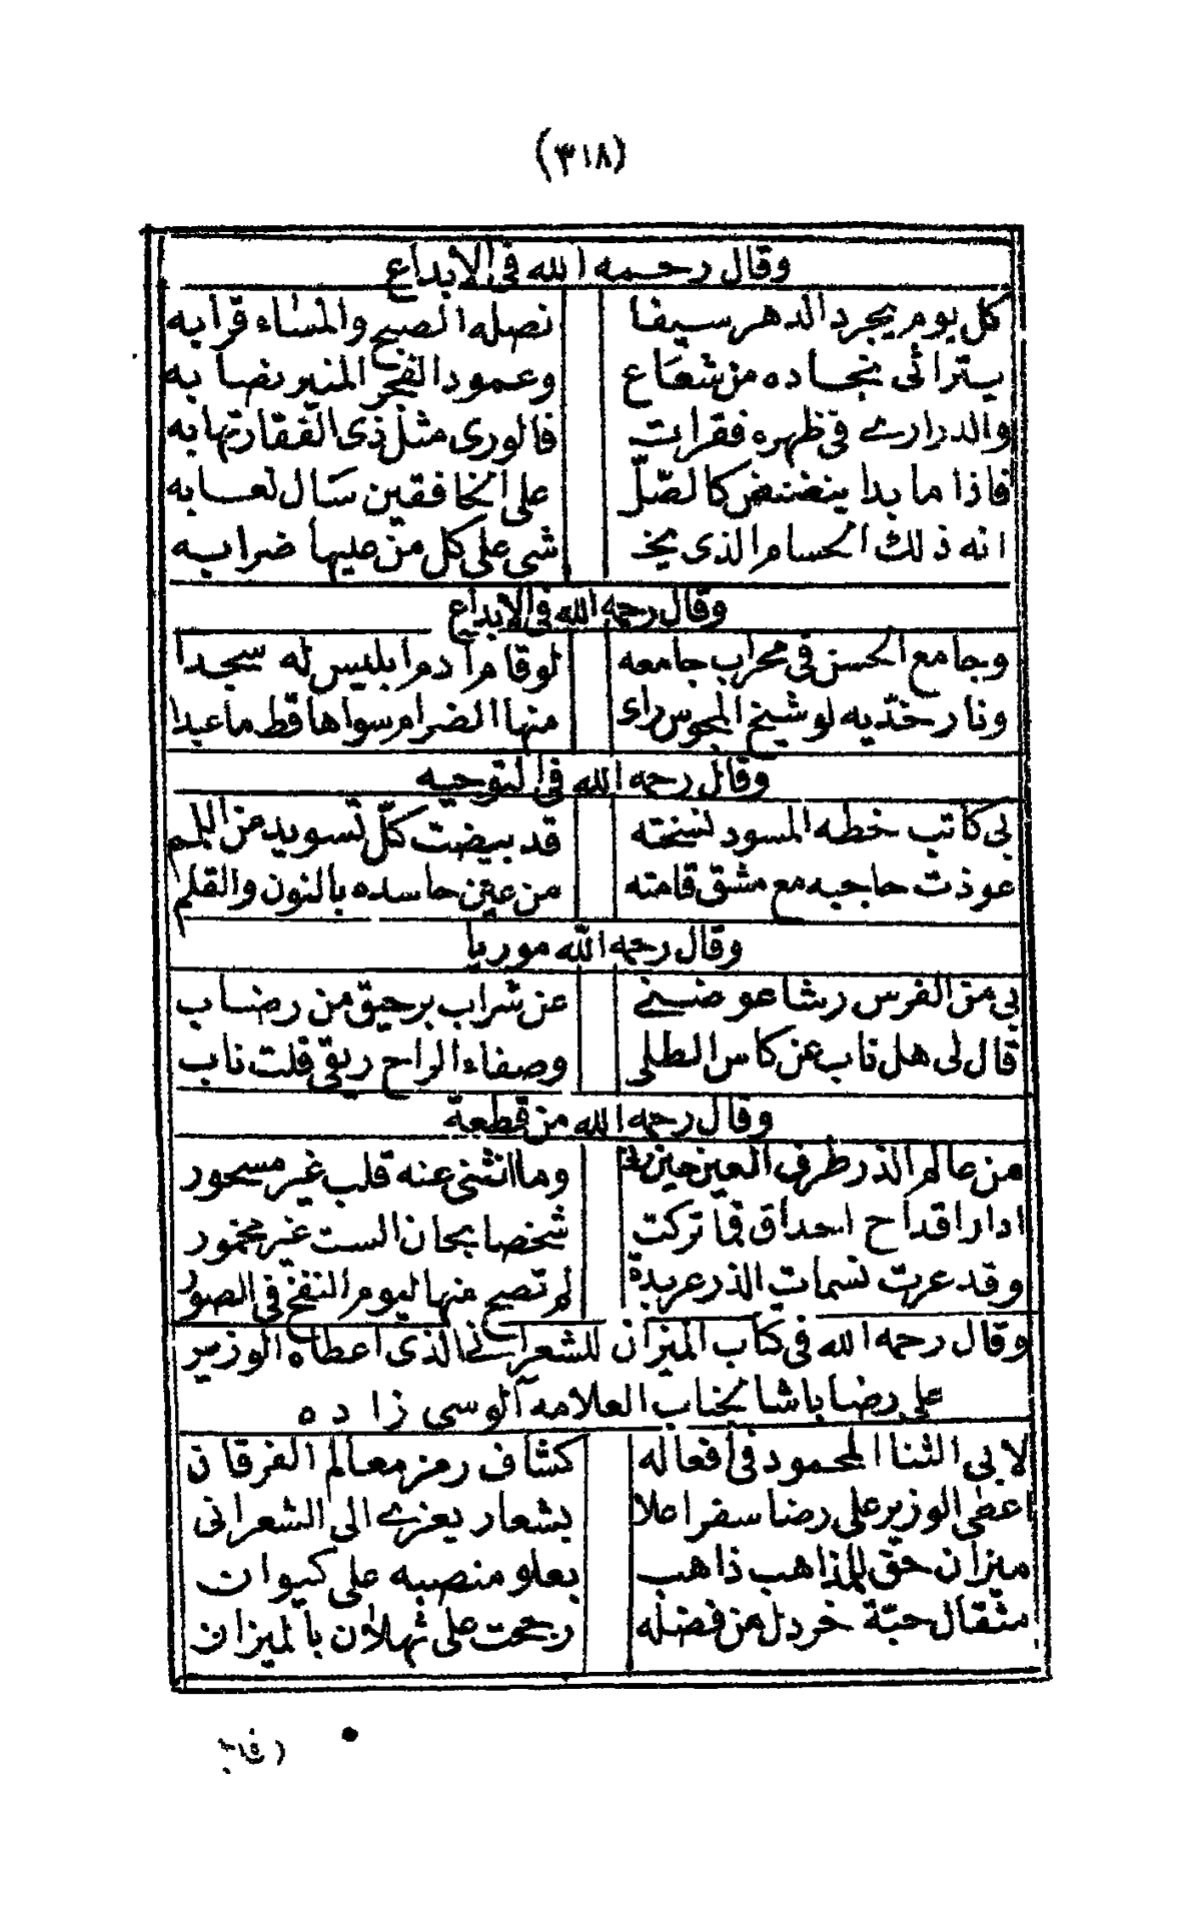 (٣١٨)
وقال رحمه الله في الابداع
كل يوم يجرد الدهر سيفا نصله الصبح والمساء قرابه
يترائى نجاده من شعاع وعمود الفجر المنير نصابه
والدرارے في ظهره فقرات فالورى مثل ذى الفقار تهابه
فاذا ما بدا ينضنض كالصّلّ على الخافقين سال لعابه
انه ذلك الحسام الذى يخـ شى على كل من عليها ضرابه
وقال رحمه الله في الابداع
وبجامع الحسن في محراب جامعه لو قام آدم ابليس له سجدا
ونار خدّيه لو شيخ المجوس راى منها الضرام سواها قط ما عبدا
وقال رحمه الله في التوجيه
بي كاتب خطه المسود نسخته قد بيضت كلّ تسويد عن اللمم
عوذت حاجبه مع مشق قامته من عين حاسده بالنون والقلم
وقال رحمه الله موريا
بي من الفرس رشا عوضنے عن شراب برحيق من رضاب
قال لى هل ناب عن كاس الطلى وصفاء الراح ريقى قلت ناب
وقال رحمه الله من قطعة
من عالم الذر طرفي العين حين رنى وما انثنى عنه قلب غير مسحور
ادار اقداح احداق فما تركت شخصا بحان الست غير مخمور
وقد عرت نسمات الذر عربدة لم تصح منها ليوم النفخ في الصور
وقال رحمه الله في كتاب الميزان للشعرانے الذى اعطاه الوزير
على رضا باشا لجناب العلامه آلوسى زاده
لابي الثنا المحمود في افعاله كشاف رمز معالم الفرقان
اعطى الوزير على رضا سفرا علا بشعار يعزے الى الشعرانى
ميزان حق للمذاهب ذاهب بعلو منصبه على كيوان
مثقال حبّة خردل من فضله رجحت على ثهلان بالميزان